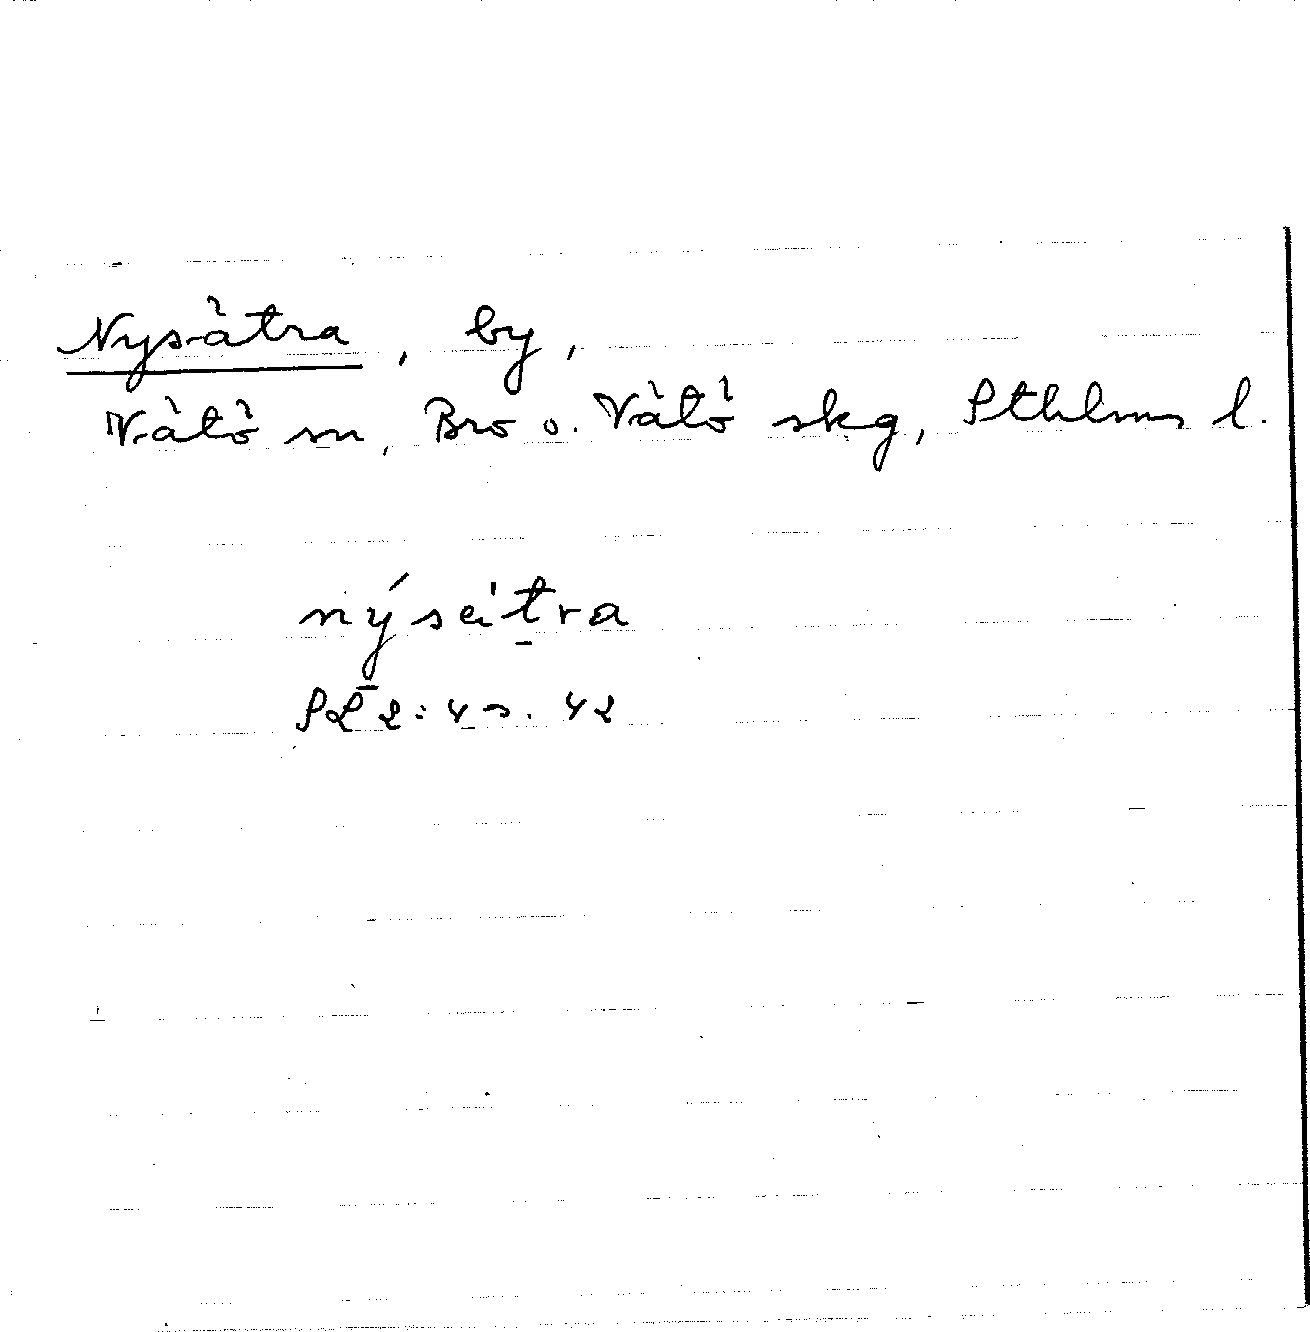 Nysätra, by,
Vätö sn, Bro o. Vätö skg, Sthlms l.
nýsätra
SL 2:4 s. 42